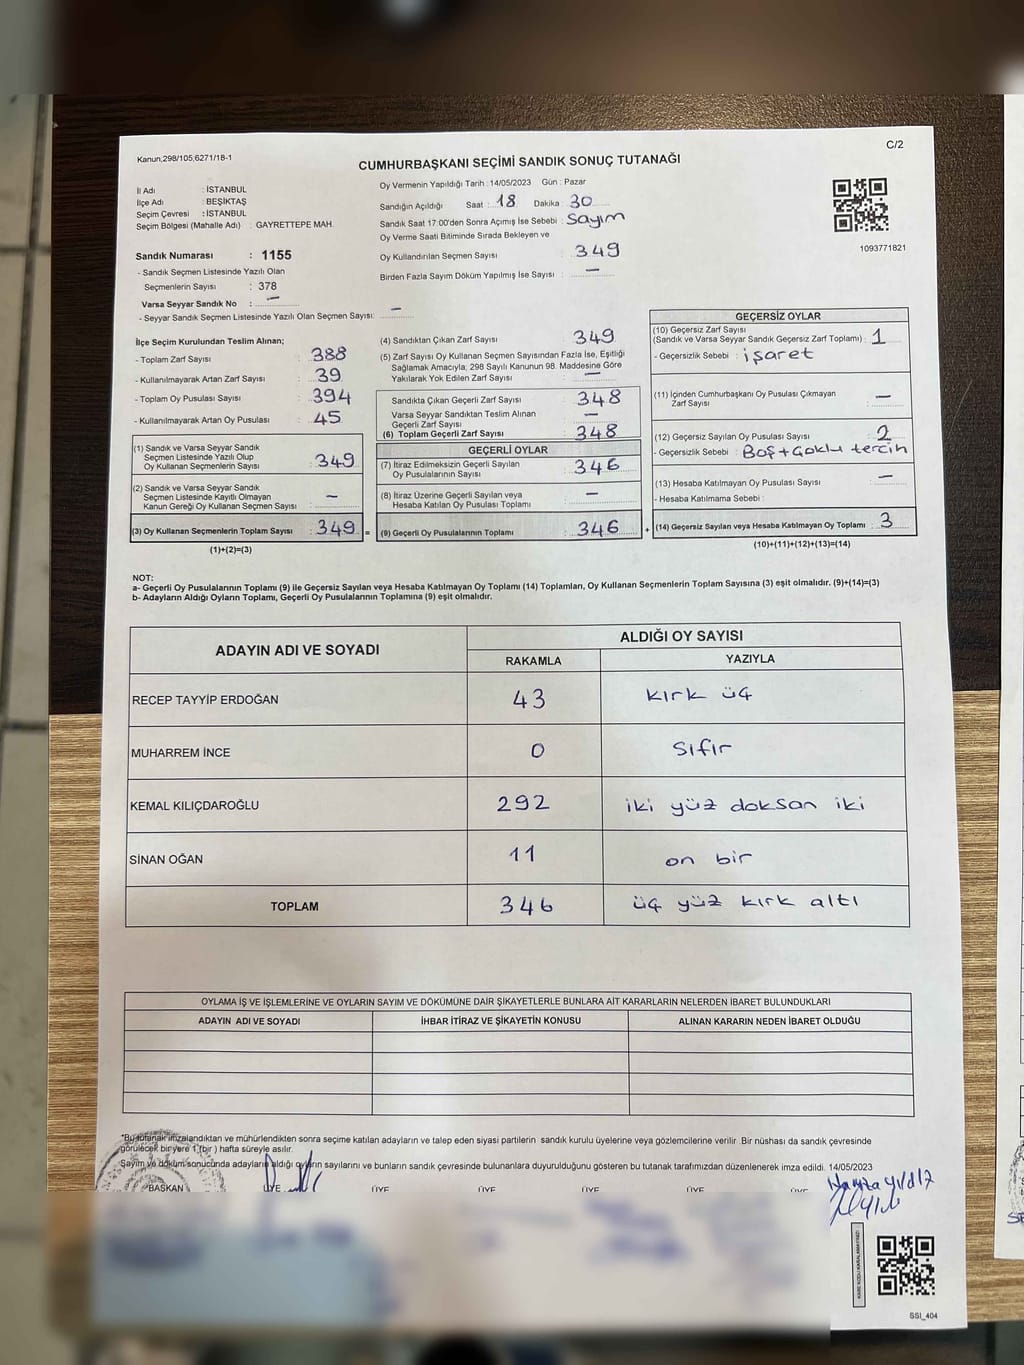 Kanun,298/105,6271/18-1
C/2
CUMHURBAŞKANI SEÇİMİ SANDIK SONUÇ TUTANAĞI
İl Adı : İSTANBUL
İlçe Adı : BEŞİKTAŞ
Seçim Çevresi : İSTANBUL
Seçim Bölgesi (Mahalle Adı) : GAYRETTEPE MAH.
Sandık Numarası : 1155
- Sandık Seçmen Listesinde Yazılı Olan
Seçmenlerin Sayısı : 378
Varsa Seyyar Sandık No : —
- Seyyar Sandık Seçmen Listesinde Yazılı Olan Seçmen Sayısı: —
Oy Vermenin Yapıldığı Tarih : 14/05/2023 Gün : Pazar
Sandığın Açıldığı Saat : 18 Dakika : 30
Sandık Saat 17:00'den Sonra Açımış İse Sebebi : Sayım
Oy Verme Saati Bitiminde Sırada Bekleyen ve
Oy Kullandırılan Seçmen Sayısı : 349
Birden Fazla Sayım Döküm Yapılmış İse Sayısı : —
1093771821
İlçe Seçim Kurulundan Teslim Alınan;
- Toplam Zarf Sayısı : 388
- Kullanılmayarak Artan Zarf Sayısı : 39
- Toplam Oy Pusulası Sayısı : 394
- Kullanılmayarak Artan Oy Pusulası : 45
(1) Sandık ve Varsa Seyyar Sandık
Seçmen Listesinde Yazılı Olup
Oy Kullanan Seçmenlerin Sayısı : 349
(2) Sandık ve Varsa Seyyar Sandık
Seçmen Listesinde Kayıtlı Olmayan
Kanun Gereği Oy Kullanan Seçmen Sayısı : —
(3) Oy Kullanan Seçmenlerin Toplam Sayısı : 349 =
(1)+(2)=(3)
(4) Sandıktan Çıkan Zarf Sayısı : 349
(5) Zarf Sayısı Oy Kullanan Seçmen Sayısından Fazla İse, Eşitliği
Sağlamak Amacıyla; 298 Sayılı Kanunun 98. Maddesine Göre
Yakılarak Yok Edilen Zarf Sayısı : —
Sandıkta Çıkan Geçerli Zarf Sayısı : 348
Varsa Seyyar Sandıktan Teslim Alınan
Geçerli Zarf Sayısı : —
(6) Toplam Geçerli Zarf Sayısı : 348
GEÇERLİ OYLAR
(7) İtiraz Edilmeksizin Geçerli Sayılan
Oy Pusulalarının Sayısı : 346
(8) İtiraz Üzerine Geçerli Sayılan veya
Hesaba Katılan Oy Pusulası Toplamı : —
(9) Geçerli Oy Pusulalarının Toplamı : 346 +
GEÇERSİZ OYLAR
(10) Geçersiz Zarf Sayısı
(Sandık ve Varsa Seyyar Sandık Geçersiz Zarf Toplamı) : 1
- Geçersizlik Sebebi : işaret
(11) İçinden Cumhurbaşkanı Oy Pusulası Çıkmayan
Zarf Sayısı : —
(12) Geçersiz Sayılan Oy Pusulası Sayısı : 2
- Geçersizlik Sebebi : Boş + Çoklu tercih
(13) Hesaba Katılmayan Oy Pusulası Sayısı : —
- Hesaba Katılmama Sebebi :
(14) Geçersiz Sayılan veya Hesaba Katılmayan Oy Toplamı : 3
(10)+(11)+(12)+(13)=(14)
NOT:
a- Geçerli Oy Pusulalarının Toplamı (9) ile Geçersiz Sayılan veya Hesaba Katılmayan Oy Toplamı (14) Toplamları, Oy Kullanan Seçmenlerin Toplam Sayısına (3) eşit olmalıdır. (9)+(14)=(3)
b- Adayların Aldığı Oyların Toplamı, Geçerli Oy Pusulalarının Toplamına (9) eşit olmalıdır.
ADAYIN ADI VE SOYADI
ALDIĞI OY SAYISI
RAKAMLA YAZIYLA
RECEP TAYYİP ERDOĞAN 43 kırk üç
MUHARREM İNCE 0 Sıfır
KEMAL KILIÇDAROĞLU 292 iki yüz doksan iki
SİNAN OĞAN 11 on bir
TOPLAM 346 üç yüz kırk altı
OYLAMA İŞ VE İŞLEMLERİNE VE OYLARIN SAYIM VE DÖKÜMÜNE DAİR ŞİKAYETLERLE BUNLARA AİT KARARLARIN NELERDEN İBARET BULUNDUKLARI
ADAYIN ADI VE SOYADI İHBAR İTİRAZ VE ŞİKAYETİN KONUSU ALINAN KARARIN NEDEN İBARET OLDUĞU
"Bu tutanak imzalandıktan ve mühürlendikten sonra seçime katılan adayların ve talep eden siyasi partilerin sandık kurulu üyelerine veya gözlemcilerine verilir .Bir nüshası da sandık çevresinde
görülecek bir yere 1 (bir ) hafta süreyle asılır.
Sayım ve döküm sonucunda adayların aldığı oyların sayılarını ve bunların sandık çevresinde bulunanlara duyurulduğunu gösteren bu tutanak tarafımızdan düzenlenerek imza edildi. 14/05/2023
BAŞKAN ÜYE ÜYE ÜYE ÜYE ÜYE ÜYE
SSI_404